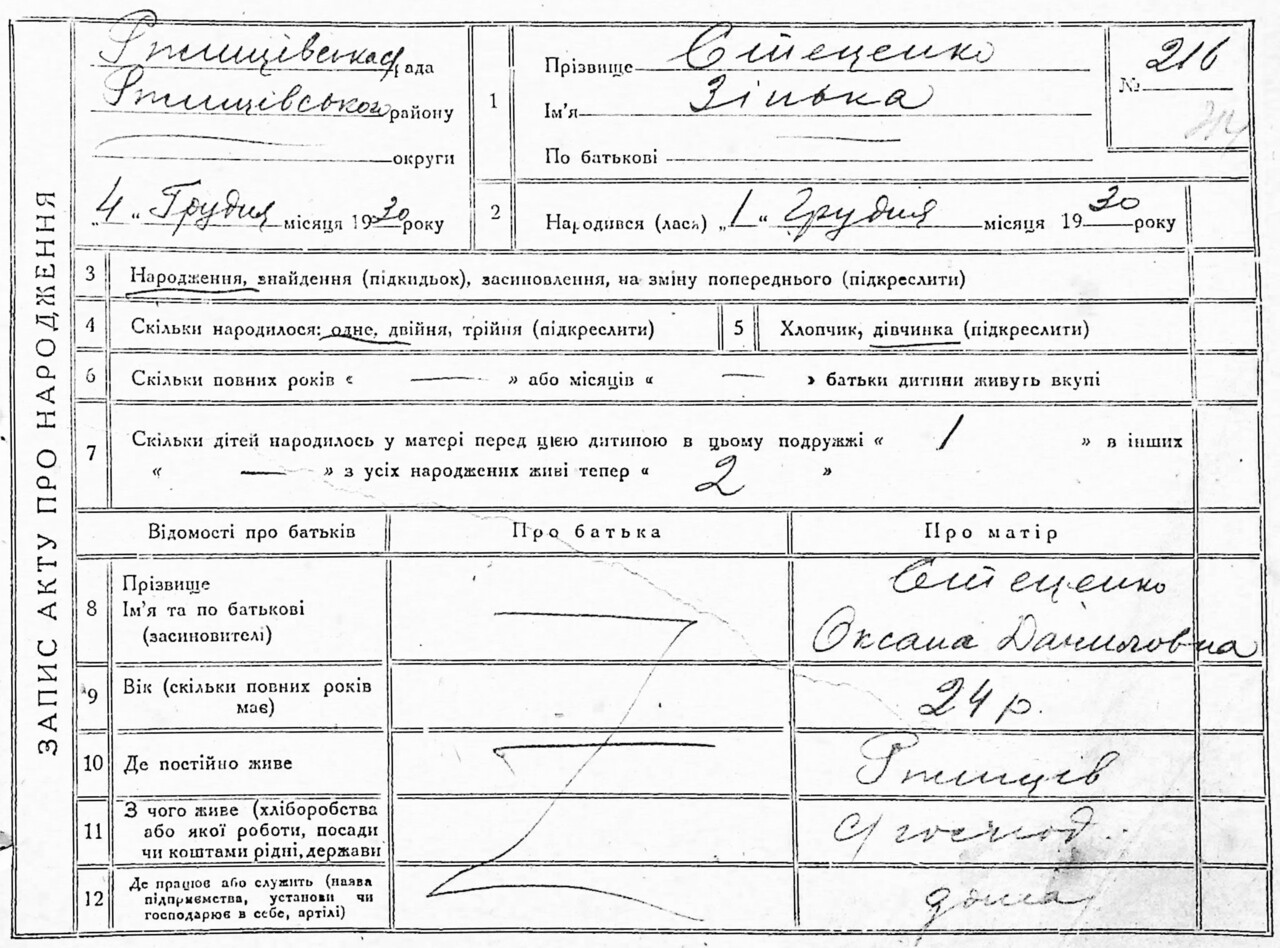 ЗАПИС АКТУ ПРО НАРОДЖЕННЯ
Ржищівська рада
Ржищівського району
округи
„4„ Грудня місяця 1930 року
1
Прізвище Стеценко
Ім'я Зінька
По батькові
№ 216
214
2
Народився (лася) „1„ Грудня місяця 1930 року
3 Народження, знайдення (підкидьок), засиновлення, на зміну попереднього (підкреслити)
4 Скільки народилося: одне, двійня, трійня (підкреслити)
5 Хлопчик, дівчинка (підкреслити)
6 Скільки повних років « — » або місяців « — » батьки дитини живуть вкупі
7 Скільки дітей народилось у матері перед цією дитиною в цьому подружжі « 1 » в інших
« — » з усіх народжених живі тепер « 2 »
Відомості про батьків Про батька Про матір
8
Прізвище
Ім'я та по батькові
(засиновителі)
Стеценко
Оксана Даниловна
9
Вік (скільки повних років
має)
24 р.
10 Де постійно живе
Ржищів
11
З чого живе (хліборобства
або якої роботи, посади
чи коштами рідні, держави
с/господ.
12
Де працює або служить (назва
підприємства, установи чи
господарює в себе, артілі)
дома